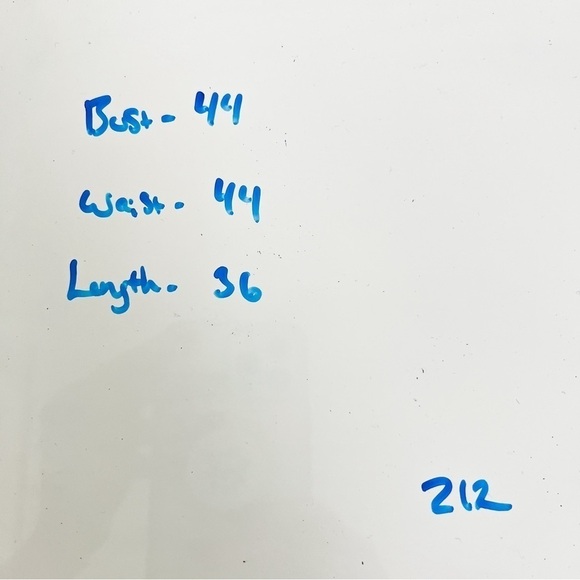 Bust - 44
Waist - 44
Length - 36
212